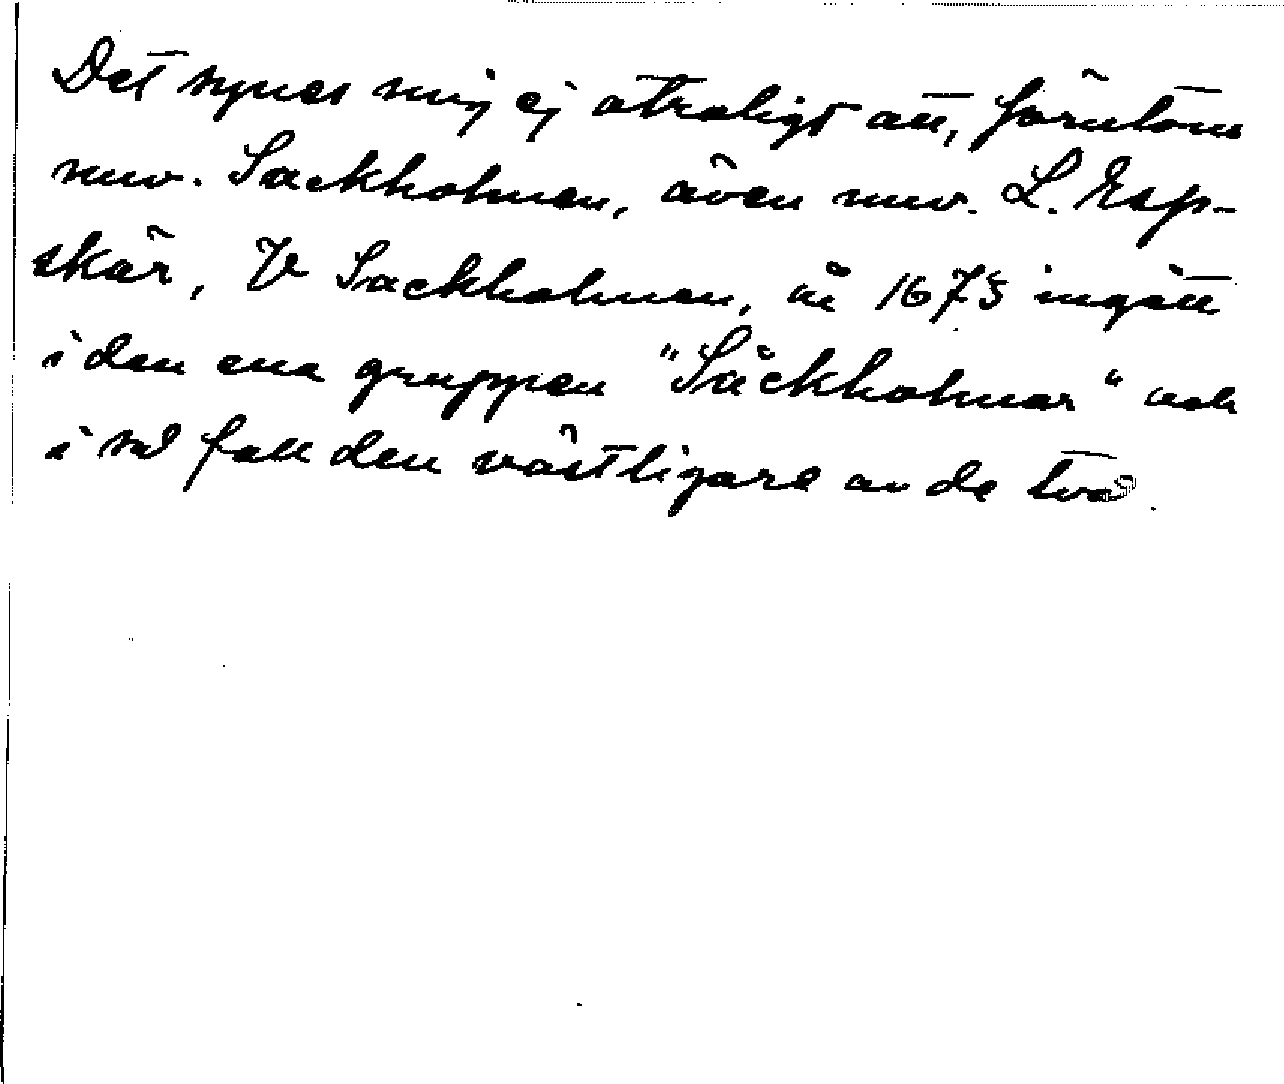 Det synes mig ej otroligt att, förutom
nuv. Sackholmen, även nuv. L. Esp-
skär, V Sackholmen, år 1675 ingått
i den ena gruppen "Säckholmar" och
i så fall den västligare av de två.